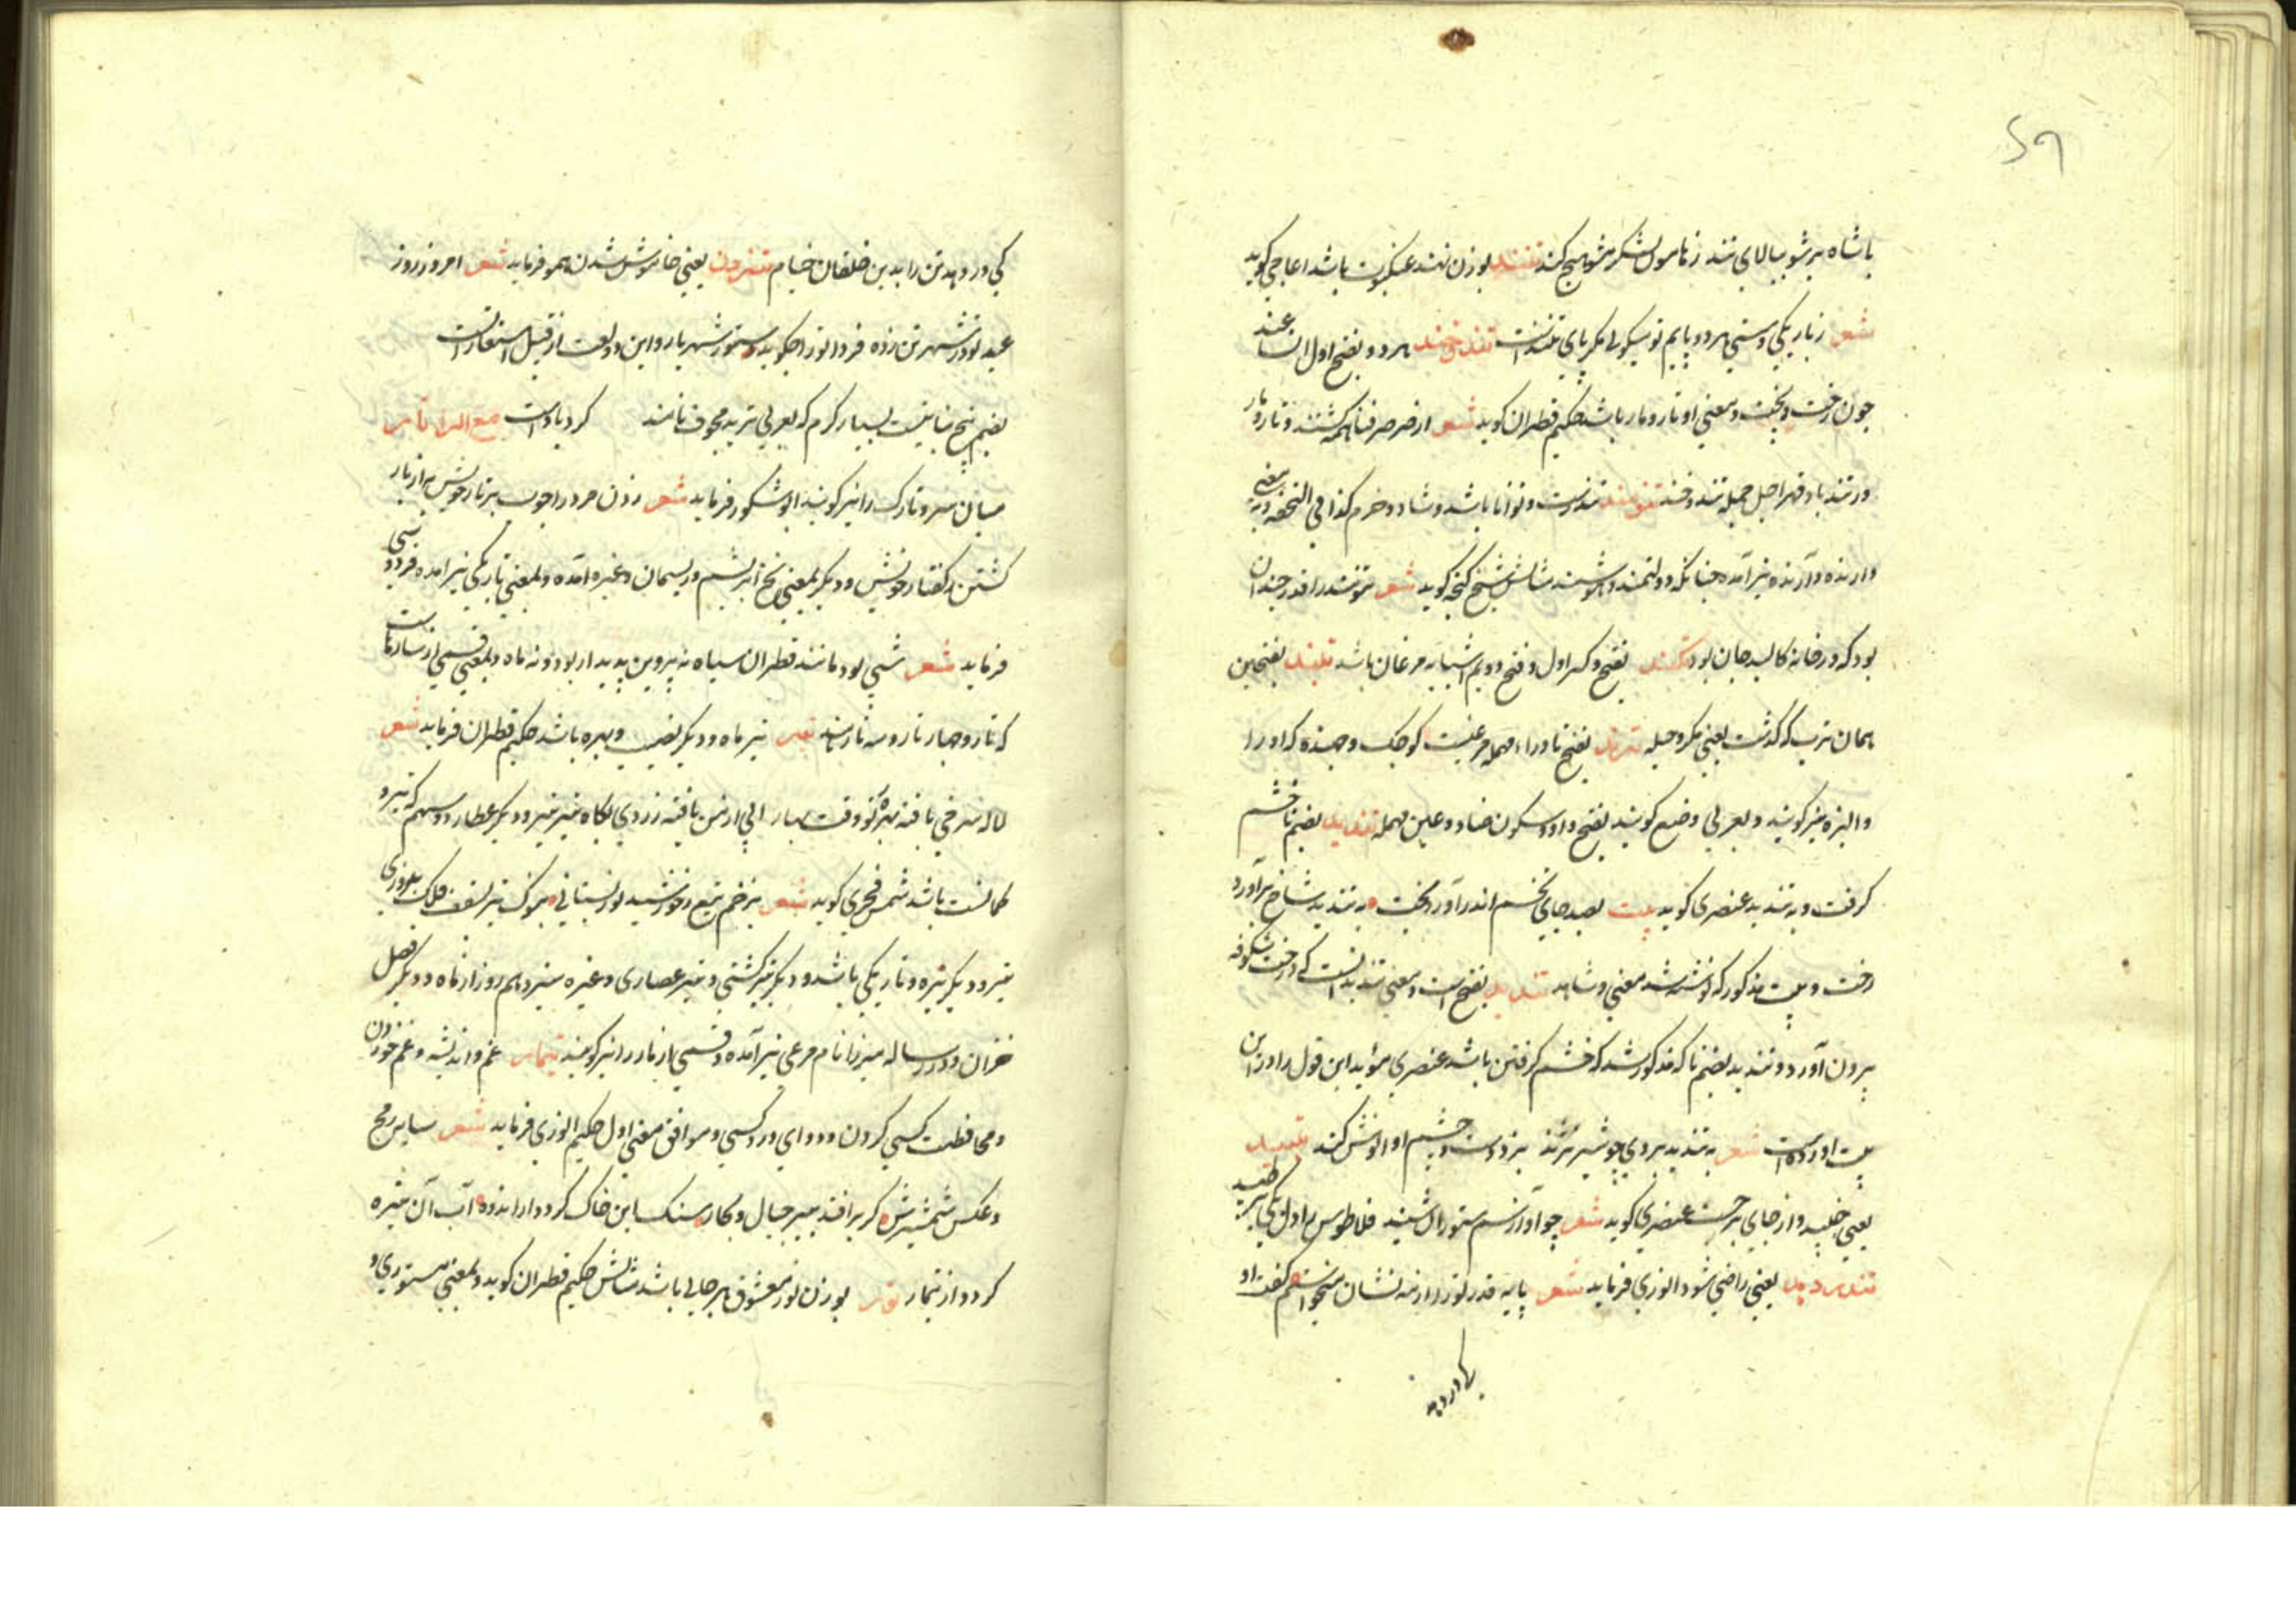 ۵۹
با شاه بر شو ببالای تند ز ناموس لشکر مشو هیچ کند تنند بوزن نهند عنکبوت باشد اغاجی گوید
شعر ز باریکی و سستی هر دو پایم تو گویی که پای تنندست تند خند هر دو بفتح اول
چون رخت و پخت و بمعنی او تار و مار باشد حکیم قطران گوید شعر از صرصر فنا همه گشتند تار و مار
ور تند باد قهر اجل جمله تند و خند تنومند تندرست و توانا باشد و شاد و خرم کذا فی التحفه و بمعنی
دارنده و آرنده نیز آمده چنانکه دولتمند و هوشمند مثالش شیخ گنجه گوید شعر تنومند را قدر چندان
بود که در خانه کالبد جان بود تکند بفتح و کسر اول و فتح دویم آشیانه مرغان باشد تلبند بفتحین
همان ترب که گذشت یعنی مکر و حیله ترند بفتح تا و راء مهمله مرغیست کوچک و جهنده که او را
والبزه نیز گویند و بعربی وضع گویند بفتح واو و سکون ضاد و عین مهمله تندید بضم تا خشم
گرفت و به تندید عنصری گوید بیت بصد جای تخم اندر آورد بخت به تندید شاخ برآورد
رخت و بیت مذکور که نوشته شد معنی و شاهد تندید بفتح است و معنی تندید آنست که درخت شکوفه
بیرون آورد و تندید بضم تا که مذکور شد که خشم گرفتن باشد عنصری مؤید این قول را در این
بیت آورده است شعر به تندید بر وی چو شیر نژند بزد دست و چشم او الوش کند
یعنی خلید و از جای برجست عنصری گوید شعر چو آواز سم ستوران شنید
یعنی راضی شود انوری فرماید شعر پایه قدر تو از نه نشان میخواستم گفت او
کی در دهد
کی در دهد تن را بدین خلقان خیام تن زدن یعنی خاموش شدن همو فرماید شعر امروز روز
عید تو در شهر تن زده فردا ترا چگوید دستور شهریار و این دو لغت از قبیل استعاراتست
بضم پنج نباتیست بسیار کرم که بعربی تربد مجوف نامند گرد باد است مع الراء تار
میان سر و تارک را نیز گویند ابو شکور فرماید شعر زدن مرد را چوب بر تار خویش به از باز
گشتن ز گفتار خویش و دیگر بمعنی نخ ابریشم و ریسمان و غیره آمده و بمعنی تاریکی نیز آمده فردوسی
فرماید شعر شبی بود مانند قطران سیاه نه پروین پدیدار بود و نه ماه و بمعنی قسمی از سازهاست
که تار و چهار تار و سه تار تیر تیر ماه و دیگر نصیب و بهره باشد حکیم قطران فرماید شعر
لاله سرخی یافته بهره تو وقت بهار الی ارمن یافته زردی بگاه تیر تیر و دیگر عطارد و سهم که تیر و
کمانست باشد شمس فخری گوید شعر بزخم تیغ ز خورشید نور بستانی بنوک تیر
تیر و دیگر تیره و تاریکی باشد و دیگر تیر کشتی و تیر عصاری و غیره سیزدهم روز از ماه و دیگر فصل
خزان و در رساله میرزا نام مرغی نیز آمده و قسمی از مار را نیز گویند تیمار غم و اندیشه و غم خوردن
و محافظت کسی کردن و دوای درد کسی و موافق معنی اول حکیم انوری فرماید شعر سایس رمح
و عکس شمشیرش گر بر افتد ببر جبال و بحار سنگ این خاک گردد از اندوه آب آن تیره
گردد از تیمار تور بوزن نور معشوق هر جایی باشد مثالش حکیم قطران گوید و بمعنی مستوری و